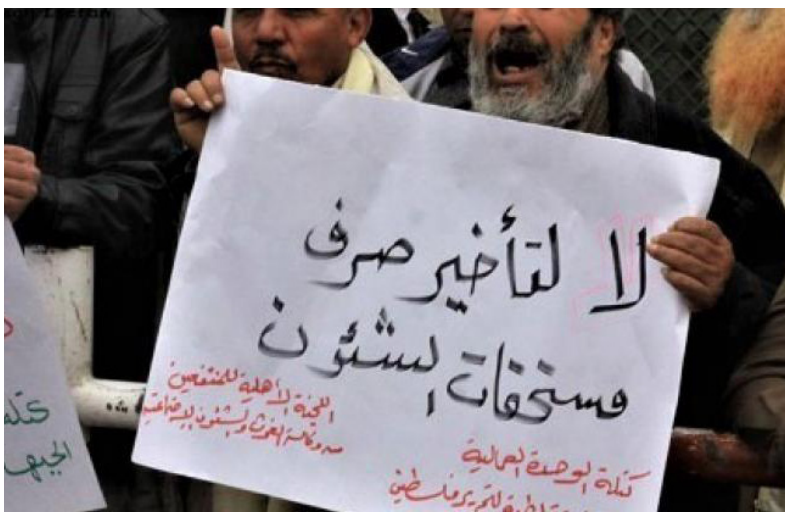 لا لتأخير صرف
مستحقات الشئون
اللجنة الأهلية للمنتفعين
من وكالة الغوث والشئون الاجتماعية
كتلة الوحدة العمالية
لتحرير فلسطين
كتلة
الجبهة